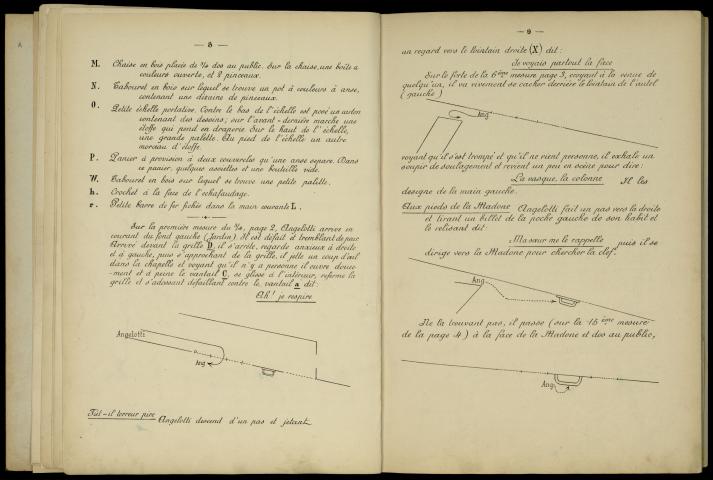 — 8 —
M. Chaise en bois placée de 3/4 dos au public. Sur la chaise, une boîte à
couleurs ouverte, et 2 pinceaux.
N. Tabouret en bois sur lequel se trouve un pot à couleurs à anse,
contenant une dizaine de pinceaux.
O. Petite échelle portative. Contre le bas de l'échelle est posé un carton
contenant des dessins; sur l'avant-dernière marche une
étoffe qui pend en draperie. Sur le haut de l'échelle,
une grande palette. Au pied de l'échelle un autre
morceau d'étoffe.
P. Panier à provision à deux couvercles qu'une anse sépare. Dans
ce panier, quelques assiettes et une bouteille vide.
W. Tabouret en bois sur lequel se trouve une petite palette.
h. Crochet à la face de l'échafaudage.
r. Petite barre de fer fichée dans la main courante L.
Sur la première mesure du 3/4, page 2, Angelotti arrive en
courant du fond gauche (Jardin) Il est défait et tremblant de peur
Arrivé devant la grille D, il s'arrête, regarde anxieux à droite
et à gauche, puis s'approchant de la grille, il jette un coup d'œil
dans la chapelle et voyant qu'il n'y a personne il ouvre douce-
-ment et à peine le vantail C, se glisse à l'intérieur, referme la
grille et s'adossant défaillant contre le vantail a dit:
Ah! je respire
Angelotti
Ang
Fût-il terreur pire Angelotti descend d'un pas et jetant
— 9 —
un regard vers le lointain droite (X) dit:
Je voyais partout la face
Sur le forte de la 6ème mesure page 3, croyant à la venue de
quelqu'un, il va vivement se cacher derrière le lointain de l'autel
(gauche)
Ang
voyant qu'il s'est trompé et qu'il ne vient personne, il exhale un
soupir de soulagement et revient un peu en scène pour dire:
La vasque, la colonne Il les
désigne de la main gauche.
Aux pieds de la Madone Angelotti fait un pas vers la droite
et tirant un billet de la poche gauche de son habit et
le relisant dit:
Ma sœur me le rappelle puis il se
dirige vers la Madone pour chercher la clef.
Ang
Ne la trouvant pas, il passe (sur la 15ème mesure
de la page 4) à la face de la Madone et dos au public,
Ang